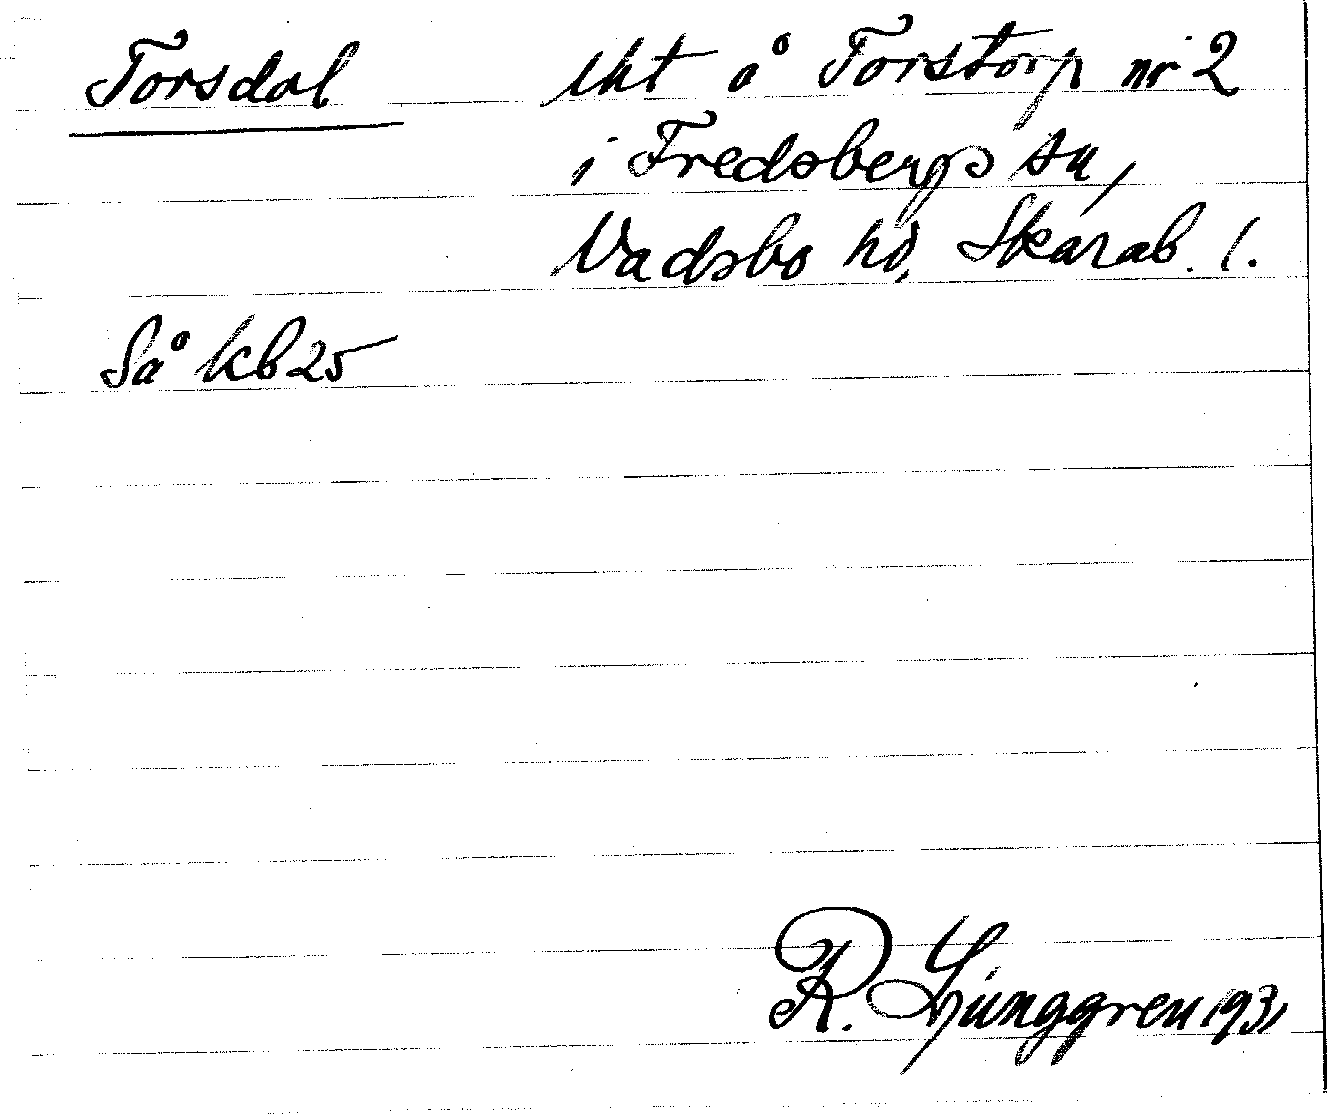 Torsdal lht å Torstorp nr 2
i Fredsbergs sn,
Vadsbo hd, Skarab. l.
Så kb 25
R. Ljunggren 1931